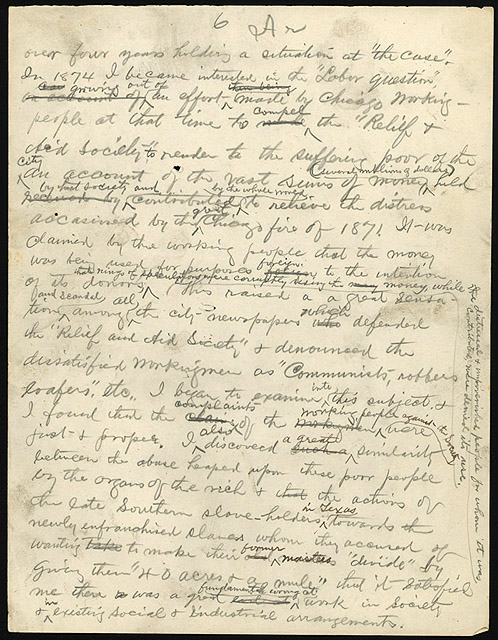 6
over four years holding a situation at "the case".
In 1874 I became interested in the "Labor question"
growing out of an effort made by Chicago Working-
people at that time to compel the "Relief &
Aid Society" to render to the suffering poor of the
city
An account of the vast sums of money (several millions of dollars) held
by that Society and contributed by the whole world to relieve the distress
occasioned by the great Chicago fire of 1871. It was
claimed by the working people that the money
was being used for purposes foreign to the intention
of its donors, that rings of speculators were corruptly using the money, while
the distressed & impoverished people for whom it was
contributed, were denied its use.
This raised a a great sensa-
tion and scandal among all the city newspapers which defended
the "Relief and Aid Society" & denounced the
dissatisfied workingmen as "Communists, robbers
loafers", etc. I began to examine into this subject &
I found that the complaints of the working people against the society were
just & proper. I also discovered a great similarity
between the abuse heaped upon these poor people
by the organs of the rich & the actions of
the late Southern slave-holders in Texas towards the
newly enfranchised slaves whom they accused of
wanting to make their former masters "divide" by
giving them "40 acres & a mule" that it satisfied
me there was a great fundamental wrong at work in Society
& in existing Social & Industrial arrangements.